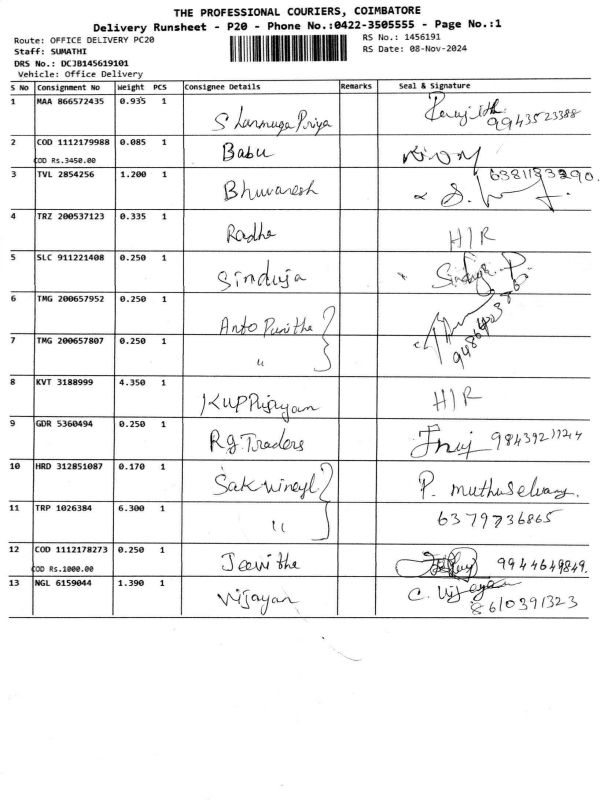 THE PROFESSIONAL COURIERS, COIMBATORE
Delivery Runsheet - P20 - Phone No.:0422-3505555 - Page No.:1
Route: OFFICE DELIVERY PC20
RS No.: 1456191
Staff: SUMATHI
RS Date: 08-Nov-2024
DRS No.: DCJB145619101
Vehicle: Office Delivery
S No Consignment No Weight PCS Consignee Details Remarks Seal & Signature
1 MAA 866572435 0.935 1 Sharmuga Priya 9943523388
2 COD 1112179988 0.085 1 Babu
COD Rs.3450.00
3 TVL 2854256 1.200 1 Bhuvanesh 6381183290
4 TRZ 200537123 0.335 1 Radha H/R
5 SLC 911221408 0.250 1 Sinduja
6 TMG 200657952 0.250 1 Anto Punitha
7 TMG 200657807 0.250 1 "
8 KVT 3188999 4.350 1 H/R
9 GDR 5360494 0.250 1 Rg. Traders
10 HRD 312851087 0.170 1 P. Muthuselvam
11 TRP 1026384 6.300 1 " 6379736865
12 COD 1112178273 0.250 1 Jeevitha 9944649849.
COD Rs.1000.00
13 NGL 6159044 1.390 1 Vijayan C. Vijayan
8610391323